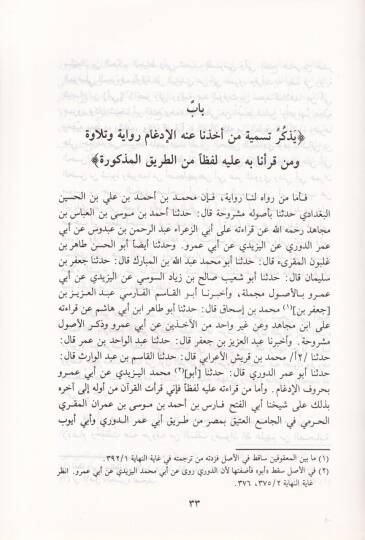 بابٌ
﴿يَذكُرُ تسمية من أخذنا عنه الإدغام رواية وتلاوة
ومن قرأنا به عليه لفظاً من الطريق المذكورة﴾
فأما من رواه لنا رواية، فإن محمد بن أحمد بن علي بن الحسين
البغدادي حدثنا بأصوله مشروحة قال: حدثنا أحمد بن موسى بن العباس بن
مجاهد رحمه الله عن قراءته على أبي الزعراء عبد الرحمن بن عبدوس عن أبي
عمر الدوري عن اليزيدي عن أبي عمرو. وحدثنا أيضاً أبو الحسن طاهر بن
غلبون المقرىء قال: حدثنا أبو محمد عبد الله بن المبارك قال: حدثنا جعفر بن
سليمان قال: حدثنا أبو شعيب صالح بن زياد السوسي عن اليزيدي عن أبي
عمرو بالأصول مجملة، وأخبرنا أبو القاسم الفارسي عبد العزيز بن
[جعفر بن]⁽¹⁾ محمد بن إسحاق قال: حدثنا أبو طاهر ابن أبي هاشم عن قراءته
على ابن مجاهد وعن غير واحد من الآخذين عن أبي عمرو وذكر الأصول
مشروحة. وأخبرنا عبد العزيز بن جعفر قال: حدثنا عبد الواحد بن عمر قال:
حدثنا /٢أ/ محمد بن قريش الأعرابي قال: حدثنا القاسم بن عبد الوارث قال:
حدثنا أبو عمر الدوري قال: حدثنا [أبو]⁽²⁾ محمد اليزيدي عن أبي عمرو
بحروف الإدغام. وأما من قراءته عليه لفظاً فإني قرأت القرآن من أوله إلى آخره
بذلك على شيخنا أبي الفتح فارس بن أحمد بن موسى بن عمران المقري
الحرمي في الجامع العتيق بمصر من طريق أبي عمر الدوري وأبي أيوب
(١) ما بين المعقوفين ساقط في الأصل فزدته من ترجمته في غاية النهاية ٣٩٢/١.
(٢) في الأصل سقط «أبو» فأضفتها لأن الدوري روى عن أبي محمد اليزيدي عن أبي عمرو. انظر
غاية النهاية ٣٧٥/٢، ٣٧٦.
٣٣